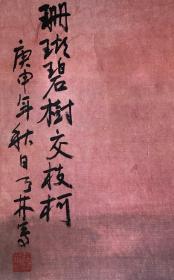 珊瑚碧樹交枝柯
庚申年秋日了林寫